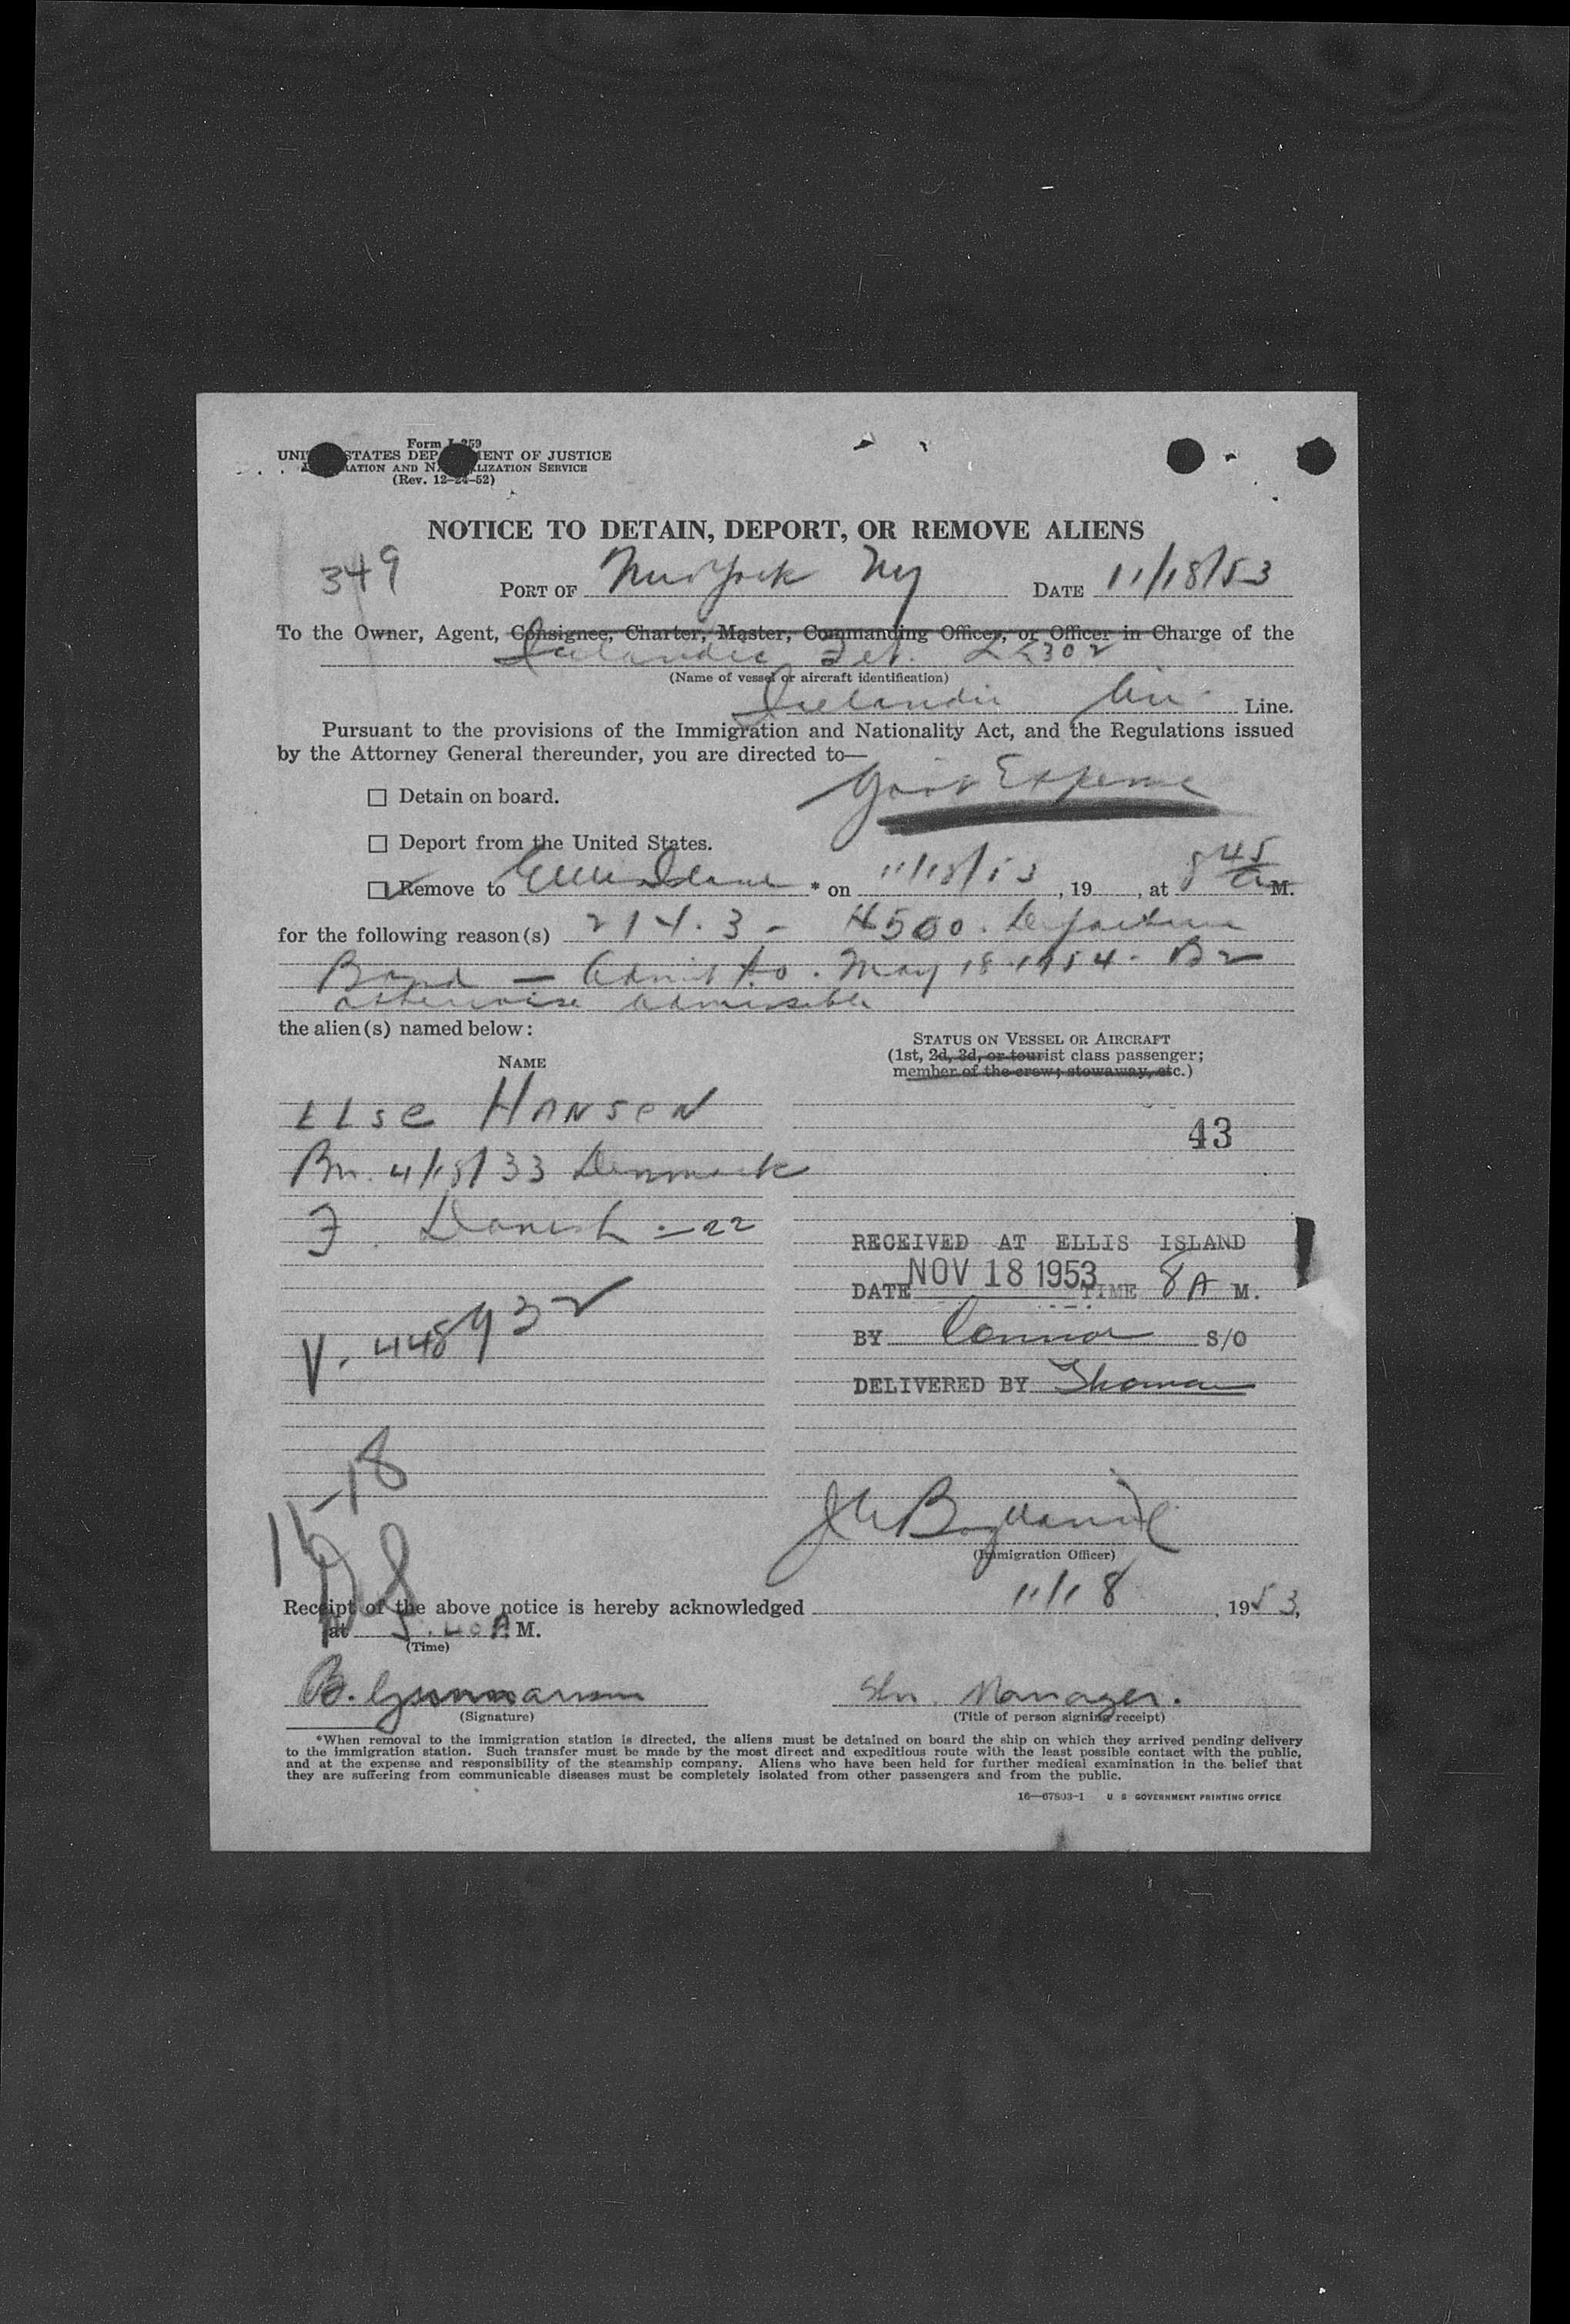 Form I-259
UNI STATES DEP MENT OF JUSTICE
RATION AND N LIZATION SERVICE
(Rev. 12-24-52)
NOTICE TO DETAIN, DEPORT, OR REMOVE ALIENS
349 PORT OF New York Ny DATE 11/18/53
To the Owner, Agent, Consignee, Charter, Master, Commanding Officer, or Officer in Charge of the
Icelandic LL302
(Name of vessel or aircraft identification)
Icelandic Air Line.
Pursuant to the provisions of the Immigration and Nationality Act, and the Regulations issued
by the Attorney General thereunder, you are directed to—
Gov't Expense
☐ Detain on board.
☐ Deport from the United States.
☐ Remove to Ellis Island * on 11/18/53, 19 , at 8 45 a M.
for the following reason(s) 214.3 - $500. Departure
Bond — Admit to. May 18 1954. B2
otherwise admissible
the alien(s) named below:
NAME
STATUS ON VESSEL OR AIRCRAFT
(1st, 2d, 3d, or tourist class passenger;
member of the crew; stowaway, etc.)
ELSe HANSeN
43
Bn. 4/18/33 Denmark
F. Danish - 22
RECEIVED AT ELLIS ISLAND
DATE NOV 18 1953 TIME 8 A M.
V. 448932
BY Connor S/O
DELIVERED BY Thomas
11-18
(Immigration Officer)
Receipt of the above notice is hereby acknowledged 11/18, 1953,
at A M.
(Time)
B. Gunnarsson Stn. Manager.
(Signature) (Title of person signing receipt)
*When removal to the immigration station is directed, the aliens must be detained on board the ship on which they arrived pending delivery
to the immigration station. Such transfer must be made by the most direct and expeditious route with the least possible contact with the public,
and at the expense and responsibility of the steamship company. Aliens who have been held for further medical examination in the belief that
they are suffering from communicable diseases must be completely isolated from other passengers and from the public.
16—67803-1 U. S. GOVERNMENT PRINTING OFFICE